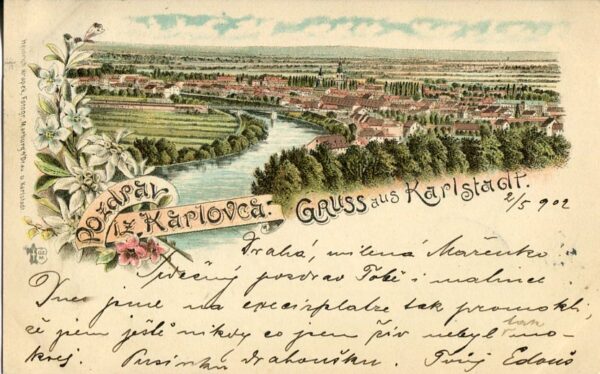 Pozdrav
iz Karlovca.
Gruss aus Karlstadt.
2/5 902
Drahá, milená Mařenko!
srdečný pozdrav Tobě i malince.
Dnes jsme na execirplatze tak promokli,
že jsem ještě nikdy co jsem živ nebyl tak mo-
krej. Pusinku drahoušku. Tvůj Edouš